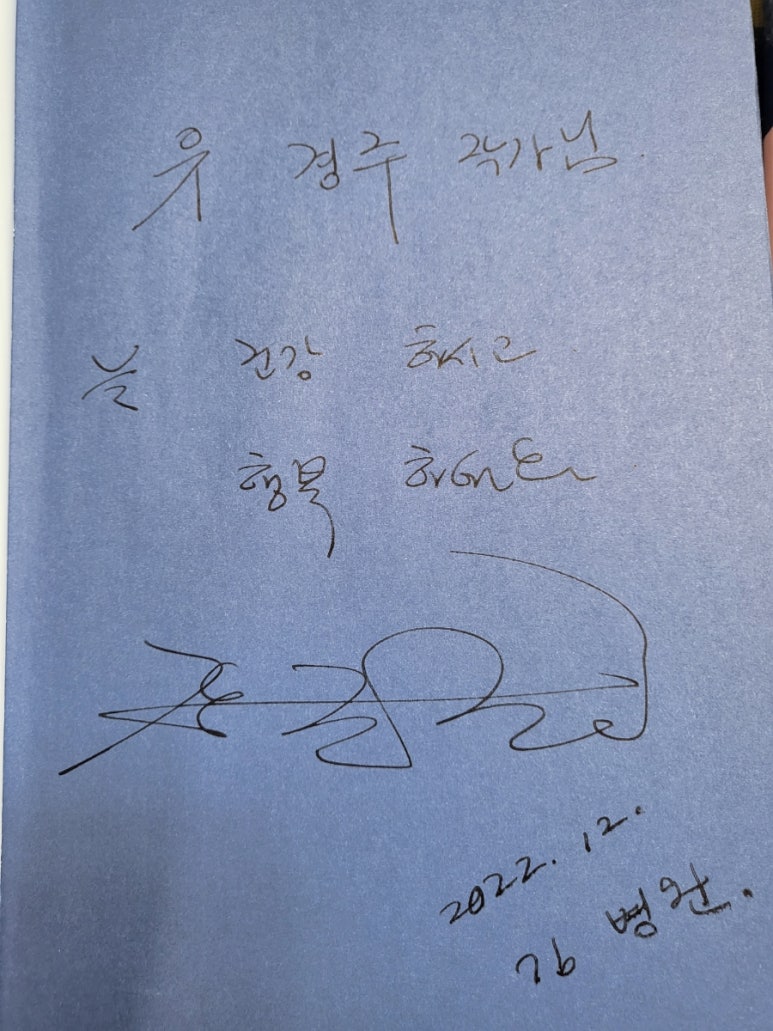 유 경주 작가님
늘 건강 하시고
행복 하세요
2022. 12.